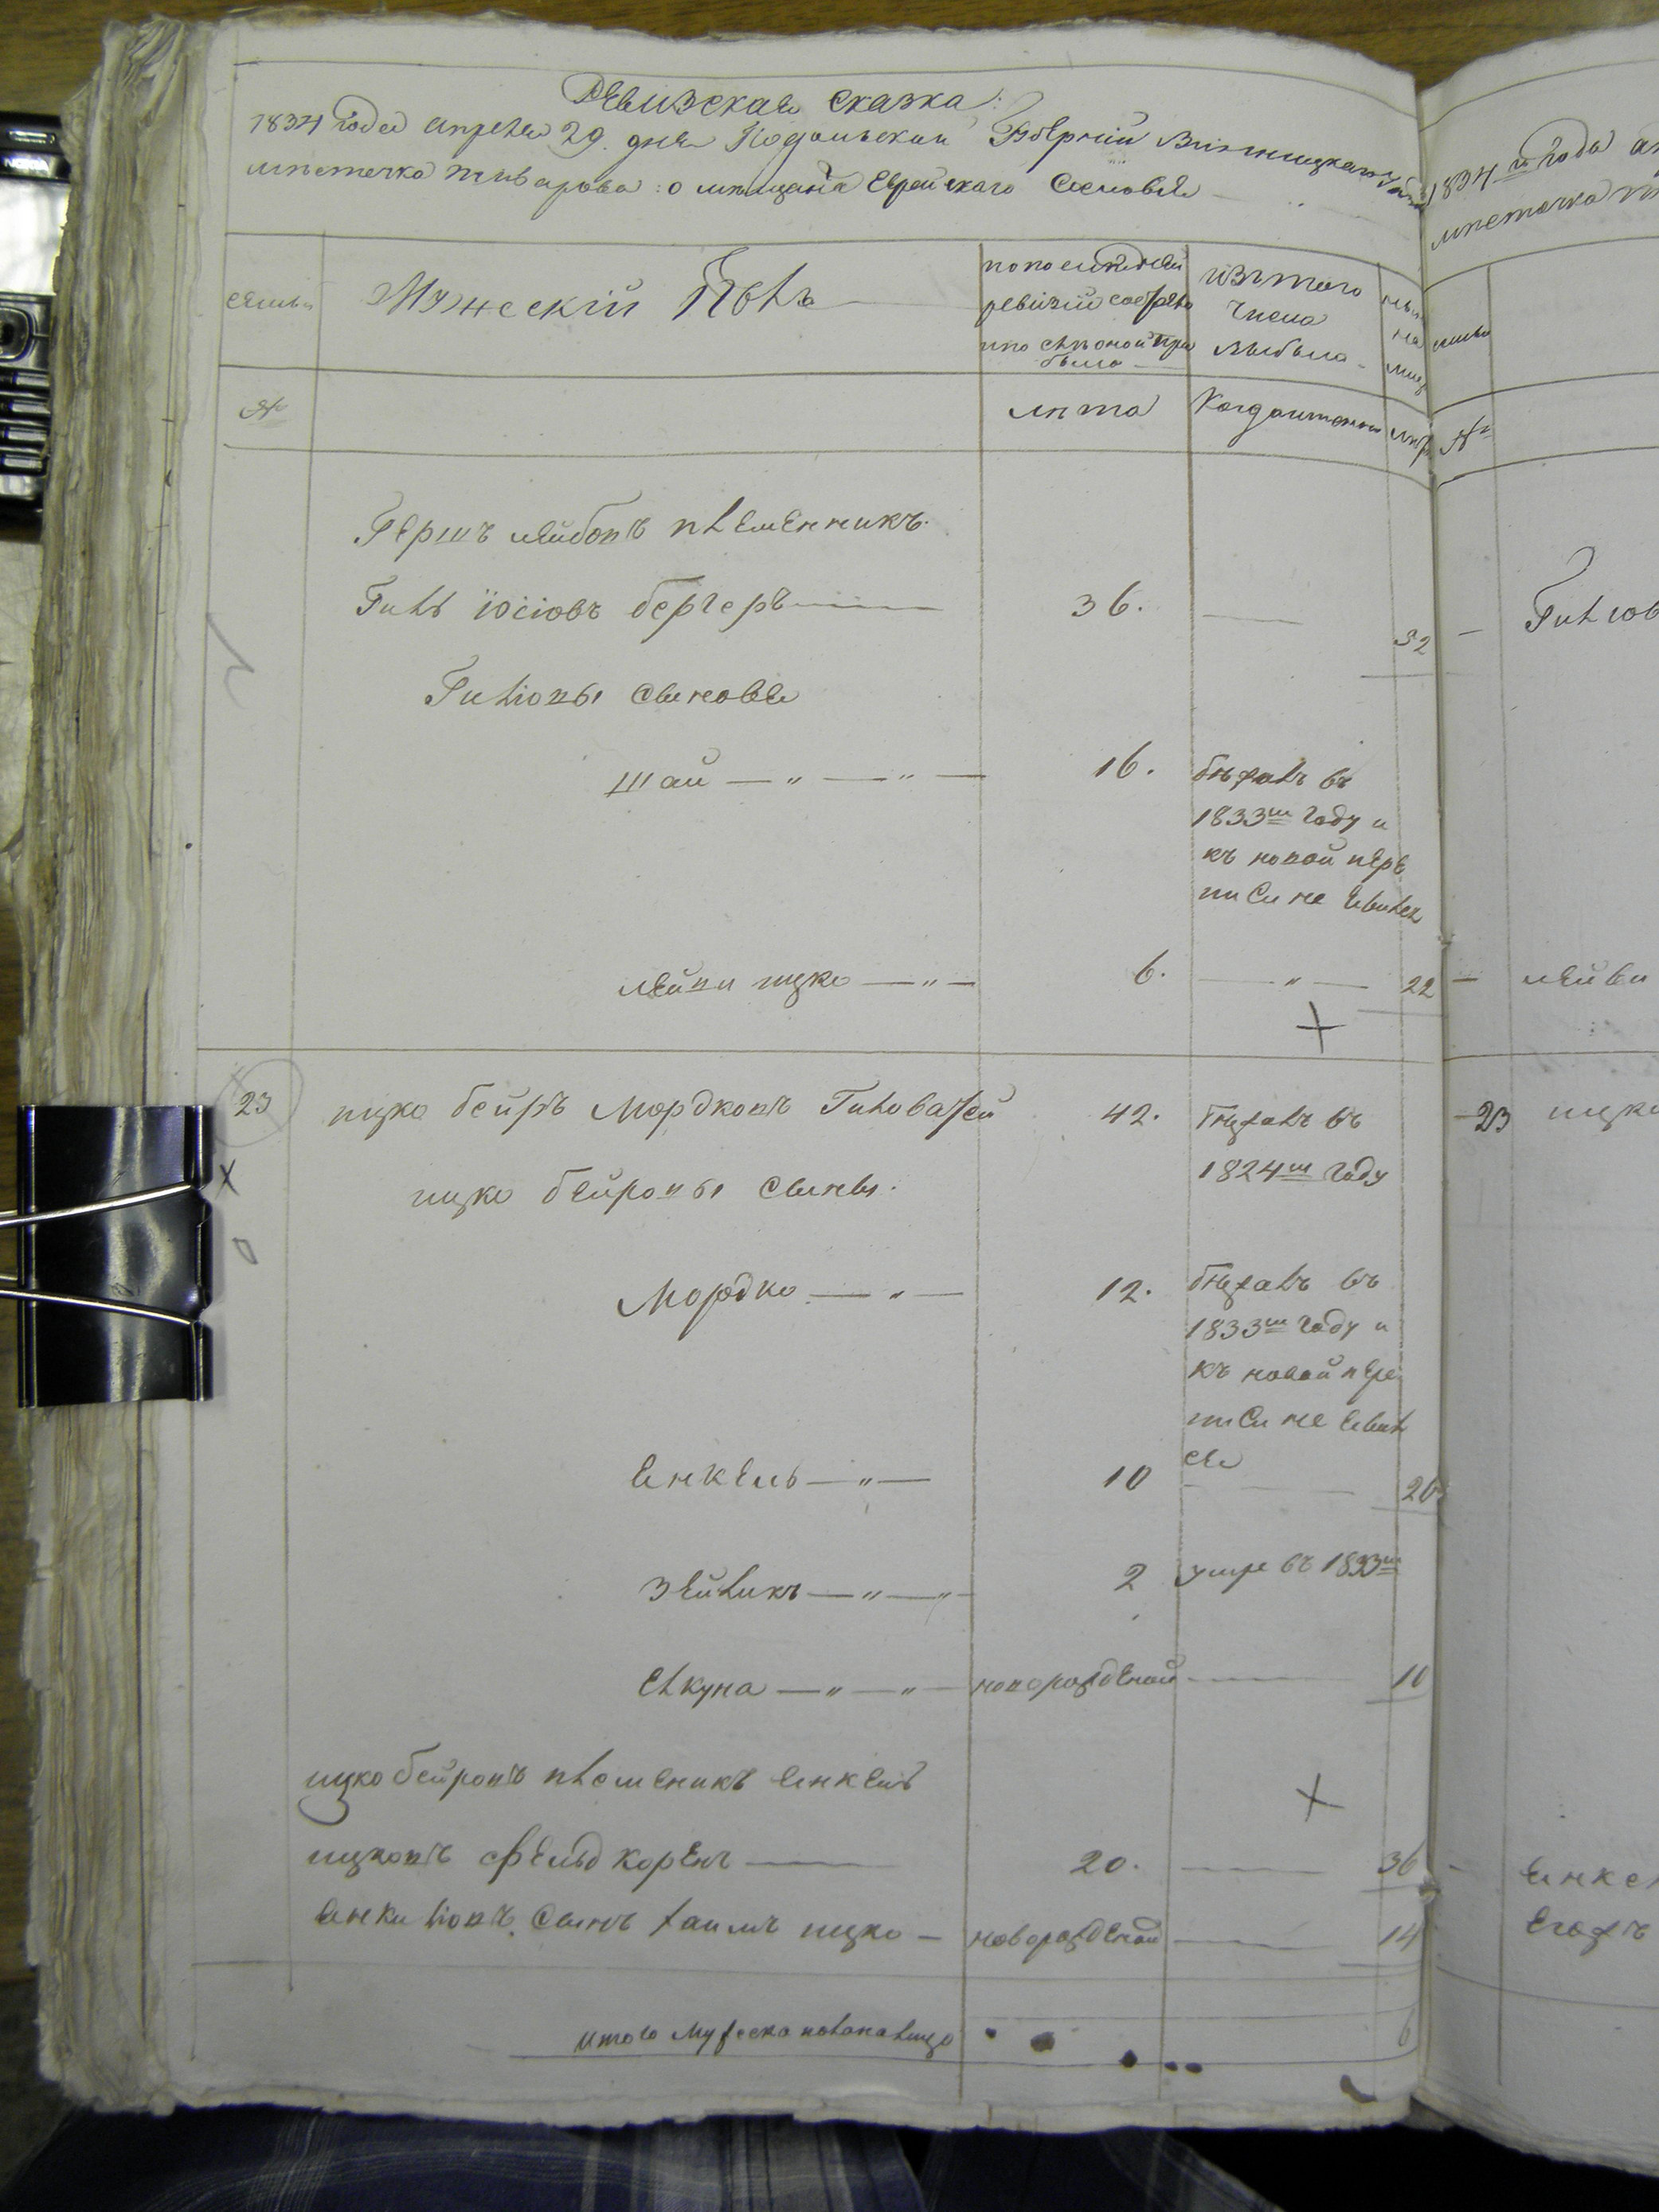 Ревизская сказка:
1834 года апреля 29. дня Подольской Губерній Винницкаго
мѣстечка тиврова: о мѣщанѣ Еврейскаго Сословія
семьи
Мужескій Полъ
по последней
ревизіи состояло
и по слѣ оной при
было
изъ того
числа
выбыло
№
лѣта
Когда именно
лѣта
Гершъ лейбовъ племенникъ.
Гиль іосіовъ бергеръ
36.
52
Гиліовы сыновя
Шай — „ — „ —
16.
бѣжалъ въ
1833м году и
къ новой пере
писи не явился
лейви ицко — „ —
6.
— „ —
22
23
ицко бейръ Мордковъ Гиловатей
42.
бѣжалъ въ
1824м году
ицко бейровы сыны.
Мордко — „ —
12.
бѣжалъ въ
1833м году и
къ новой пере
писи не явил
ся
Янкель — „ —
10
20
Зейликъ — „ — „ —
2
умре въ 1833м
Елкуна — „ — „ —
новорожденой
10
ицко бейровъ племеникъ янкель
ицковъ Фельдкоренъ
20.
36
янкиліовъ сынъ хаимъ ицко —
новорожденой
14
итого мужеска пола налицо
6
1834 го года
мѣстечка
№
Гилов
лейви
23
ицко
Янкел